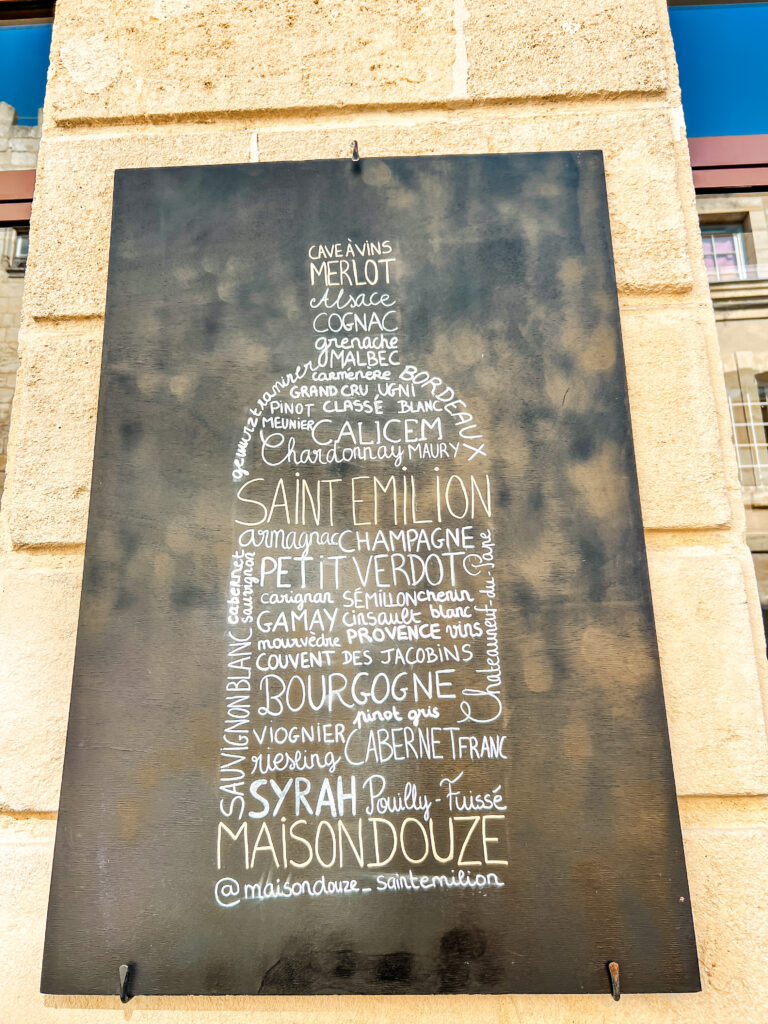 CAVE À VINS
MERLOT
Alsace
COGNAC
grenache
MALBEC
carménère
gewurztraminer
BORDEAUX
GRAND CRU UGNI
PINOT CLASSÉ BLANC
MEUNIER CALICEM
Chardonnay MAURY
SAINT EMILION
armagnac CHAMPAGNE
cabernet
sauvignon
PETIT VERDOT
Chateauneuf-du-Pape
carignan SÉMILLON chenin
GAMAY cinsault blanc
mourvèdre PROVENCE vins
COUVENT DES JACOBINS
SAUVIGNON BLANC
BOURGOGNE
pinot gris
VIOGNIER CABERNET FRANC
riesling
SYRAH Pouilly-Fuissé
MAISON DOUZE
@maisondouze_saintemilion